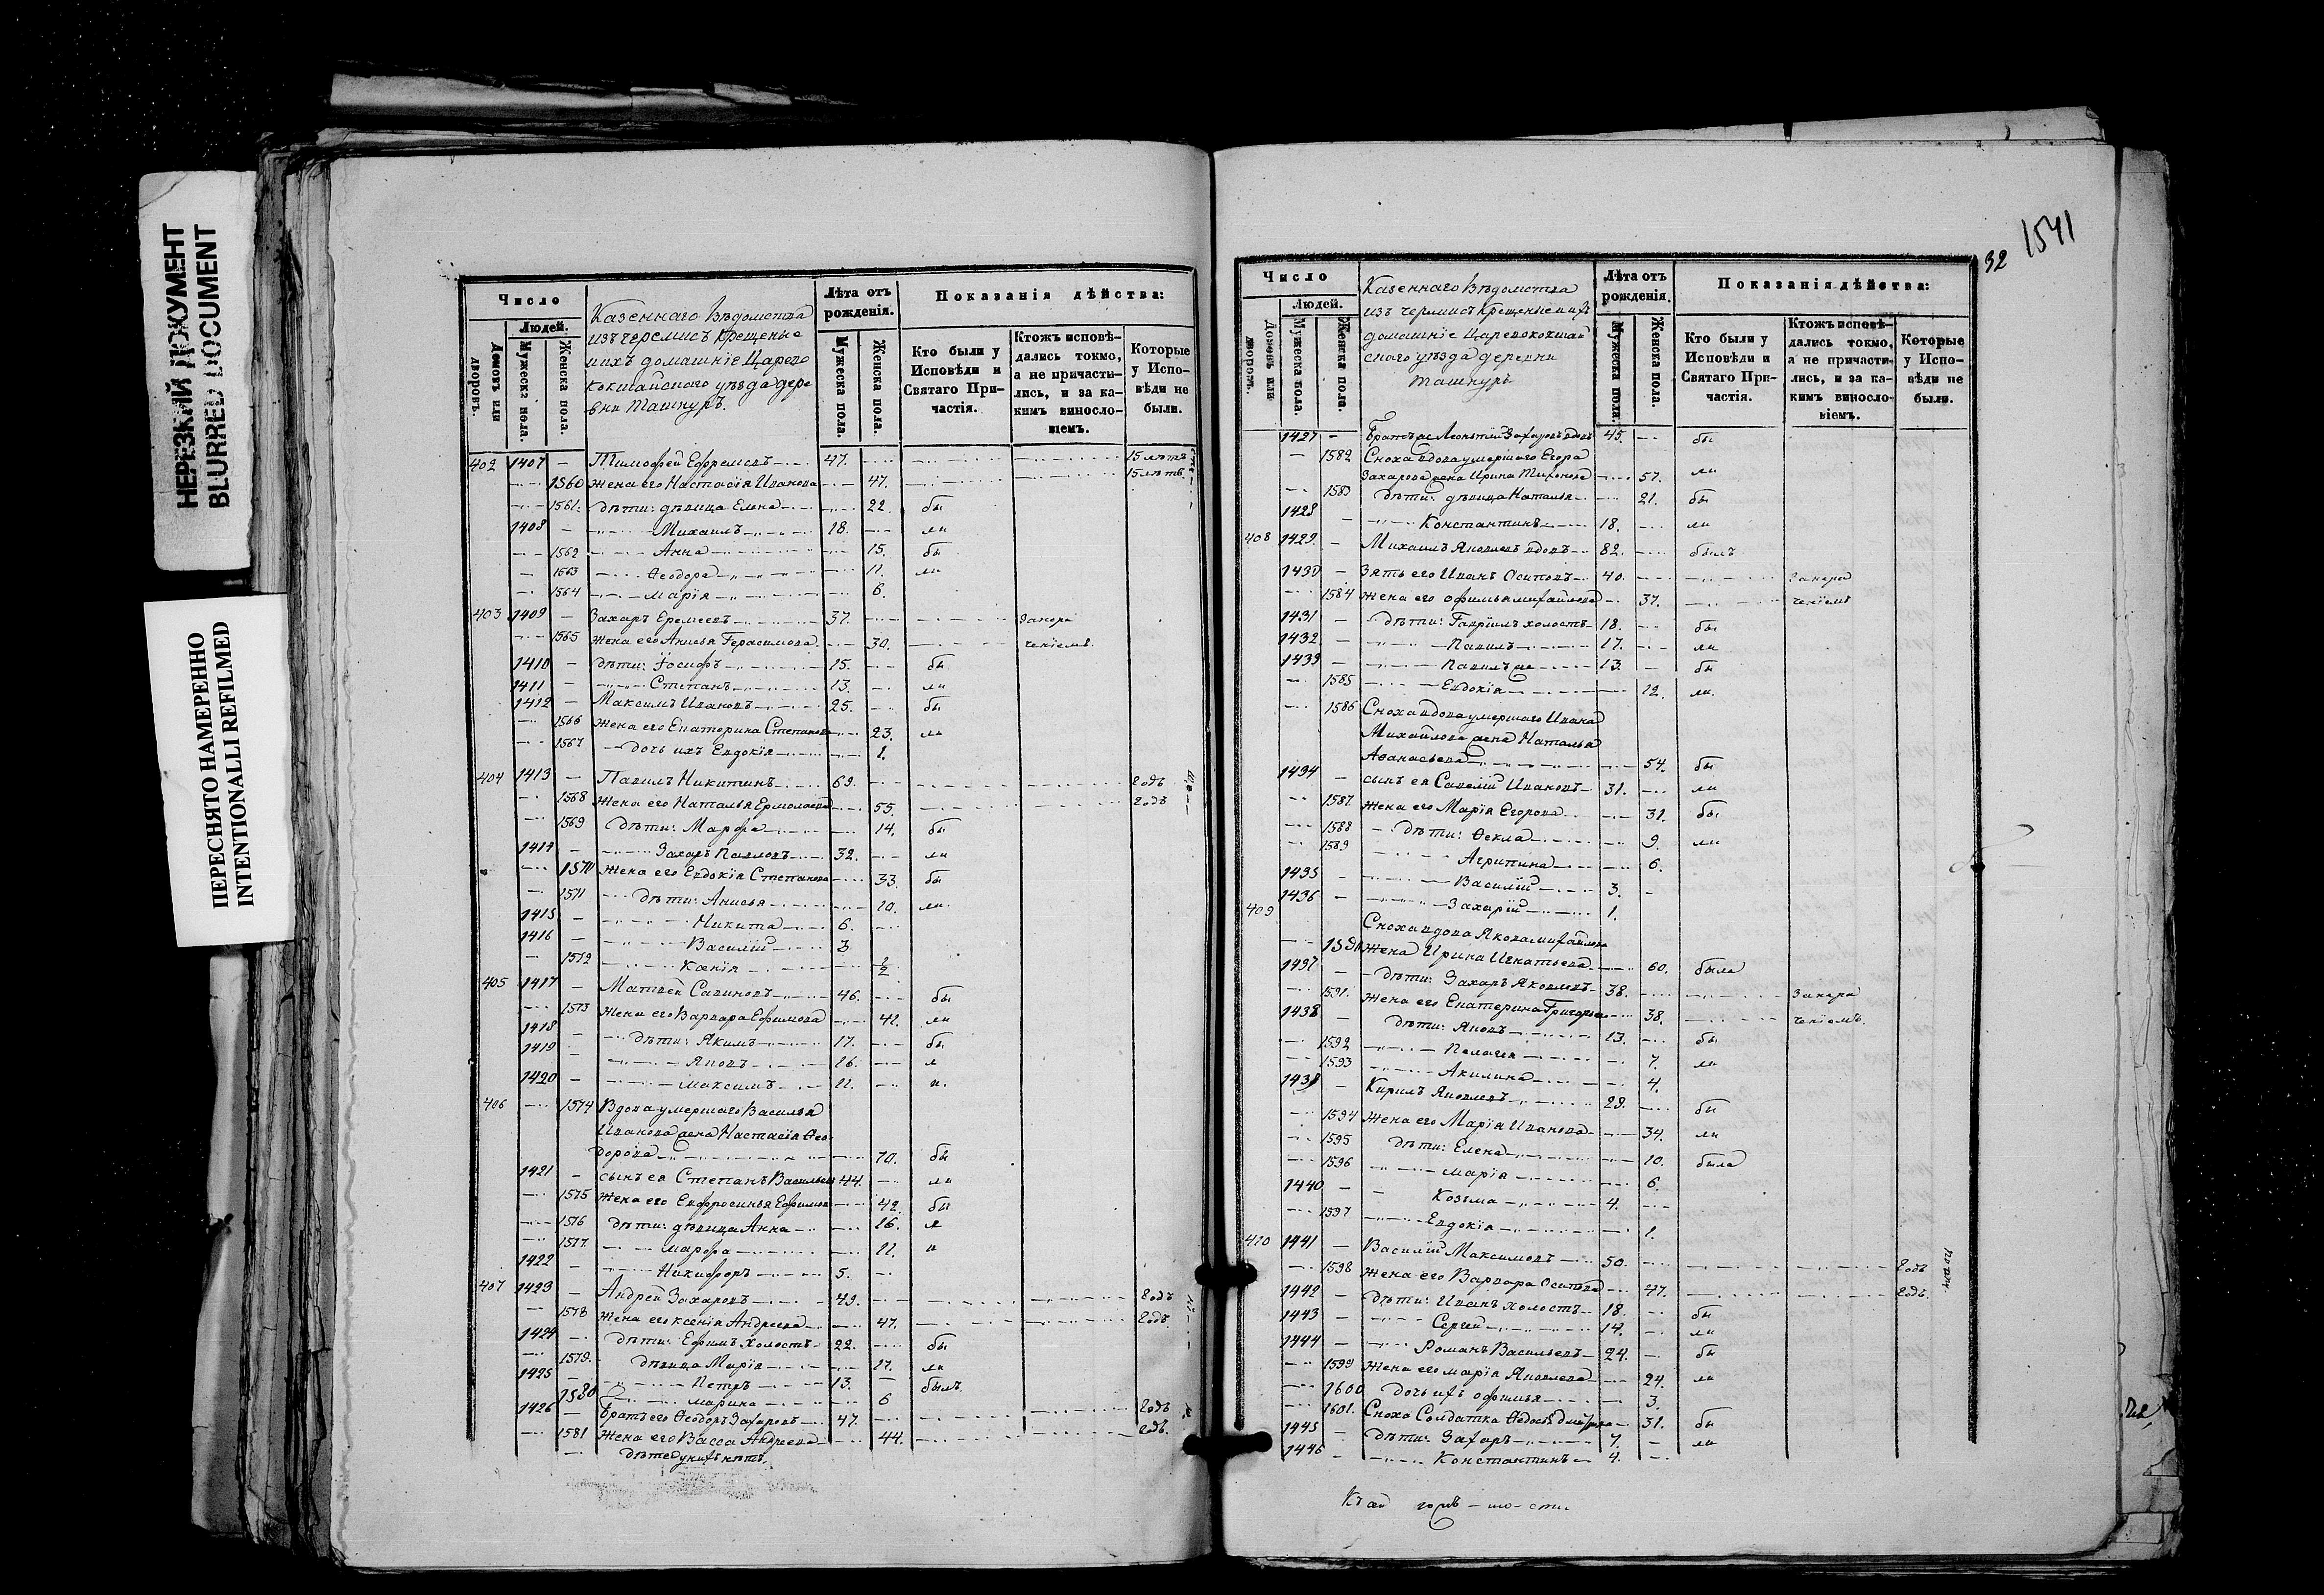 НЕРЕЗКИЙ ДОКУМЕНТ
BLURRED DOCUMENT
ПЕРЕСНЯТО НАМЕРЕННО
INTENTIONALLI REFILMED
Число
Людей.
Домовъ или дворовъ.
Мужеска пола.
Женска пола.
Казеннаго Вѣдомства
изъ черемисъ Крещеные
ихъ домашніе Царево
кокшайского уѣзда дере
вни Ташнуръ.
Лѣта отъ рожденія.
Мужеска пола.
Женска пола.
Показанія дѣйства:
Кто были у Исповѣди и Святаго Причастія.
Ктожъ исповѣдались токмо, а не причастились, и за какимъ винословіемъ.
Которые у Исповѣди не были.
402 1407 — Тимофей Ефремовъ 47. 15 лѣтъ
1560 Жена его Настасія Иванова 47. 15 лѣтъ.
1561. Дѣти: дѣвица Елена 22. бы
1408 — Михаилъ 18. ли
1562 Анна 15. бы
1563 Ѳеодора 11. ли
1564 Марія 6.
403 1409 — Захаръ Еремеевъ 37. Занера
1565 Жена его Анисья Герасимова 30. ченіемъ.
1410 — дѣти: Іосифъ 15. бы
1411 — Степанъ 13. ли
1412 — Максимъ Ивановъ 25. бы
1566 Жена его Екатерина Степанова 23. ли
1567 дочь ихъ Евдокія 1.
404 1413 — Павилъ Никитинъ 69. годъ
1568 Жена его Наталья Ермолаева 55. годъ
1569 Дѣти: Марфа 14. бы
1414 — Захаръ Павловъ 32. ли
1570 Жена его Евдокія Степанова 33. бы
1571 Дѣти: Анисья 10. ли.
1415 — Никита 6.
1416 — Василій 3
1572 Ксенія ½
405 1417 — Матвей Савиновъ 46. бы
1573 Жена его Варвара Ефимова 41. ли
1418 — Дѣти: Якимъ 17. бы
1419 — Яковъ 16. л
1420 — Максимъ 11. и.
406 1574 Вдова умершаго Василья
Иванова жена Настасія Ѳео
дорова 70. бы
1421 — сынъ ея Степанъ Васильевъ 44. ли
1575 Жена его Евфросинья Ефимова 42. бы
1576 Дѣти: дѣвица Анна 16. л
1577. Марфа 11. и
1422 — Никифоръ 5.
407 1423 — Андрей Захаровъ 49. годъ
1578 Жена его Ксенія Андреева 47. годъ.
1424 — Дѣти: Ефимъ холостъ 22. бы
1579. Дѣвица Марія 17. ли
1425 — Петръ 13. былъ.
1580 Марина 6
1426 — Братъ его Ѳеодоръ Захаровъ 47. годъ
1581 Жена его Васса Андреева 44. годъ.
дѣтей у нихъ нѣтъ.
1541
32
Число
Людей.
Домовъ или дворовъ.
Мужеска пола.
Женска пола.
Казеннаго Вѣдомства
изъ черемисъ Крещеные ихъ
домашніе Царевококшай
скаго уѣзда деревни
Ташнуръ
Лѣта отъ рожденія.
Мужеска пола.
Женска пола.
Показанія дѣйства:
Кто были у Исповѣди и Святаго Причастія.
Ктожъ исповѣдались токмо, а не причастились, и за какимъ винословіемъ.
Которые у Исповѣди не были.
1427 — Братъ же Леонтій Захаровъ вдовъ 45. бы
1582 Сноха вдова умершаго Егора
Захарова жена Ирина Тихонова 57. ли
1583 Дѣти: дѣвица Наталья 21. бы
1428 — Константинъ 18. ли
408 1429. — Михаилъ Яковлевъ вдовъ 82. былъ
1430 — Зять его Иванъ Осиповъ 40. Занера
1584 Жена его Офимья Михайлова 37. ченіемъ
1431 — Дѣти: Гавріилъ холостъ 18. бы
1432 — Павилъ 17. ли
1433 — Павилъ же 13. бы
1585 Евдокія 12. ли.
1586 Сноха вдова умершаго Ивана
Михайлова жена Наталья
Аѳанасьева 54. бы
1434 — сынъ ея Савелій Ивановъ 31. ли
1587. Жена его Марія Егорова 31. бы
1588 дѣти: Ѳекла 9. ли
1589 Агрипина 6.
1435 — Василій 3.
1436 — Захарій 1.
409 Сноха вдова Якова Михайлова
1590 Жена Ирина Игнатьева 60. была
1437 — дѣти: Захаръ Яковлевъ 38. Занера
1591. Жена его Екатерина Григорьева 38. ченіемъ.
1438 — Дѣти: Яковъ 13. бы
1592 Пелагея 7. ли
1593 Акилина 4.
1439 — Кирилъ Яковлевъ 28. бы
1594 Жена его Марія Иванова 34. ли
1595 Дѣти: Елена 10. была
1596 Марія 6.
1440 — Козьма 4.
1597 Евдокія 1.
410 1441 — Василій Максимовъ 50. годъ
1598 Жена его Варвара Осипова 47. годъ.
1442 — Дѣти: Иванъ холостъ 18. бы
1443 — Сергей 14. ли
1444 — Романъ Васильевъ 24. бы
1599 Жена его Марія Яковлева 24. ли
1600 Дочь ихъ Офимья 3.
1601. Сноха Солдатка Ѳедосья 31. бы
1445 — Дѣти: Захаръ 7. ли
1446 — Константинъ 4.